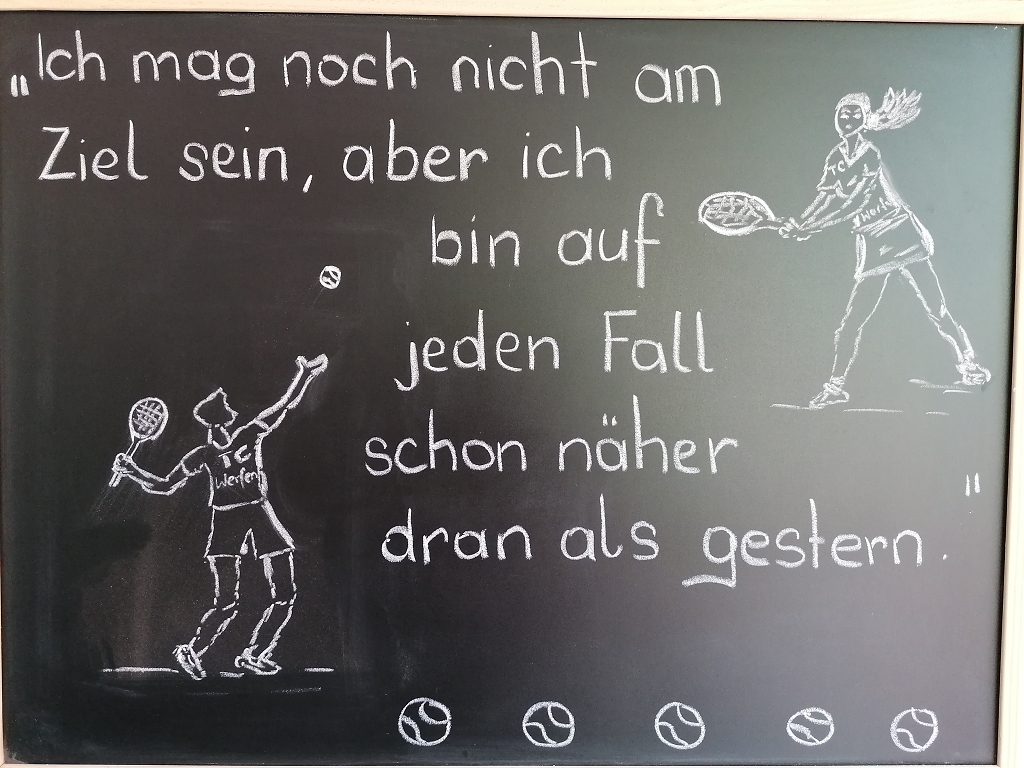 „Ich mag noch nicht am
Ziel sein, aber ich
bin auf
jeden Fall
schon näher
dran als gestern."
TC
Werfen
TC